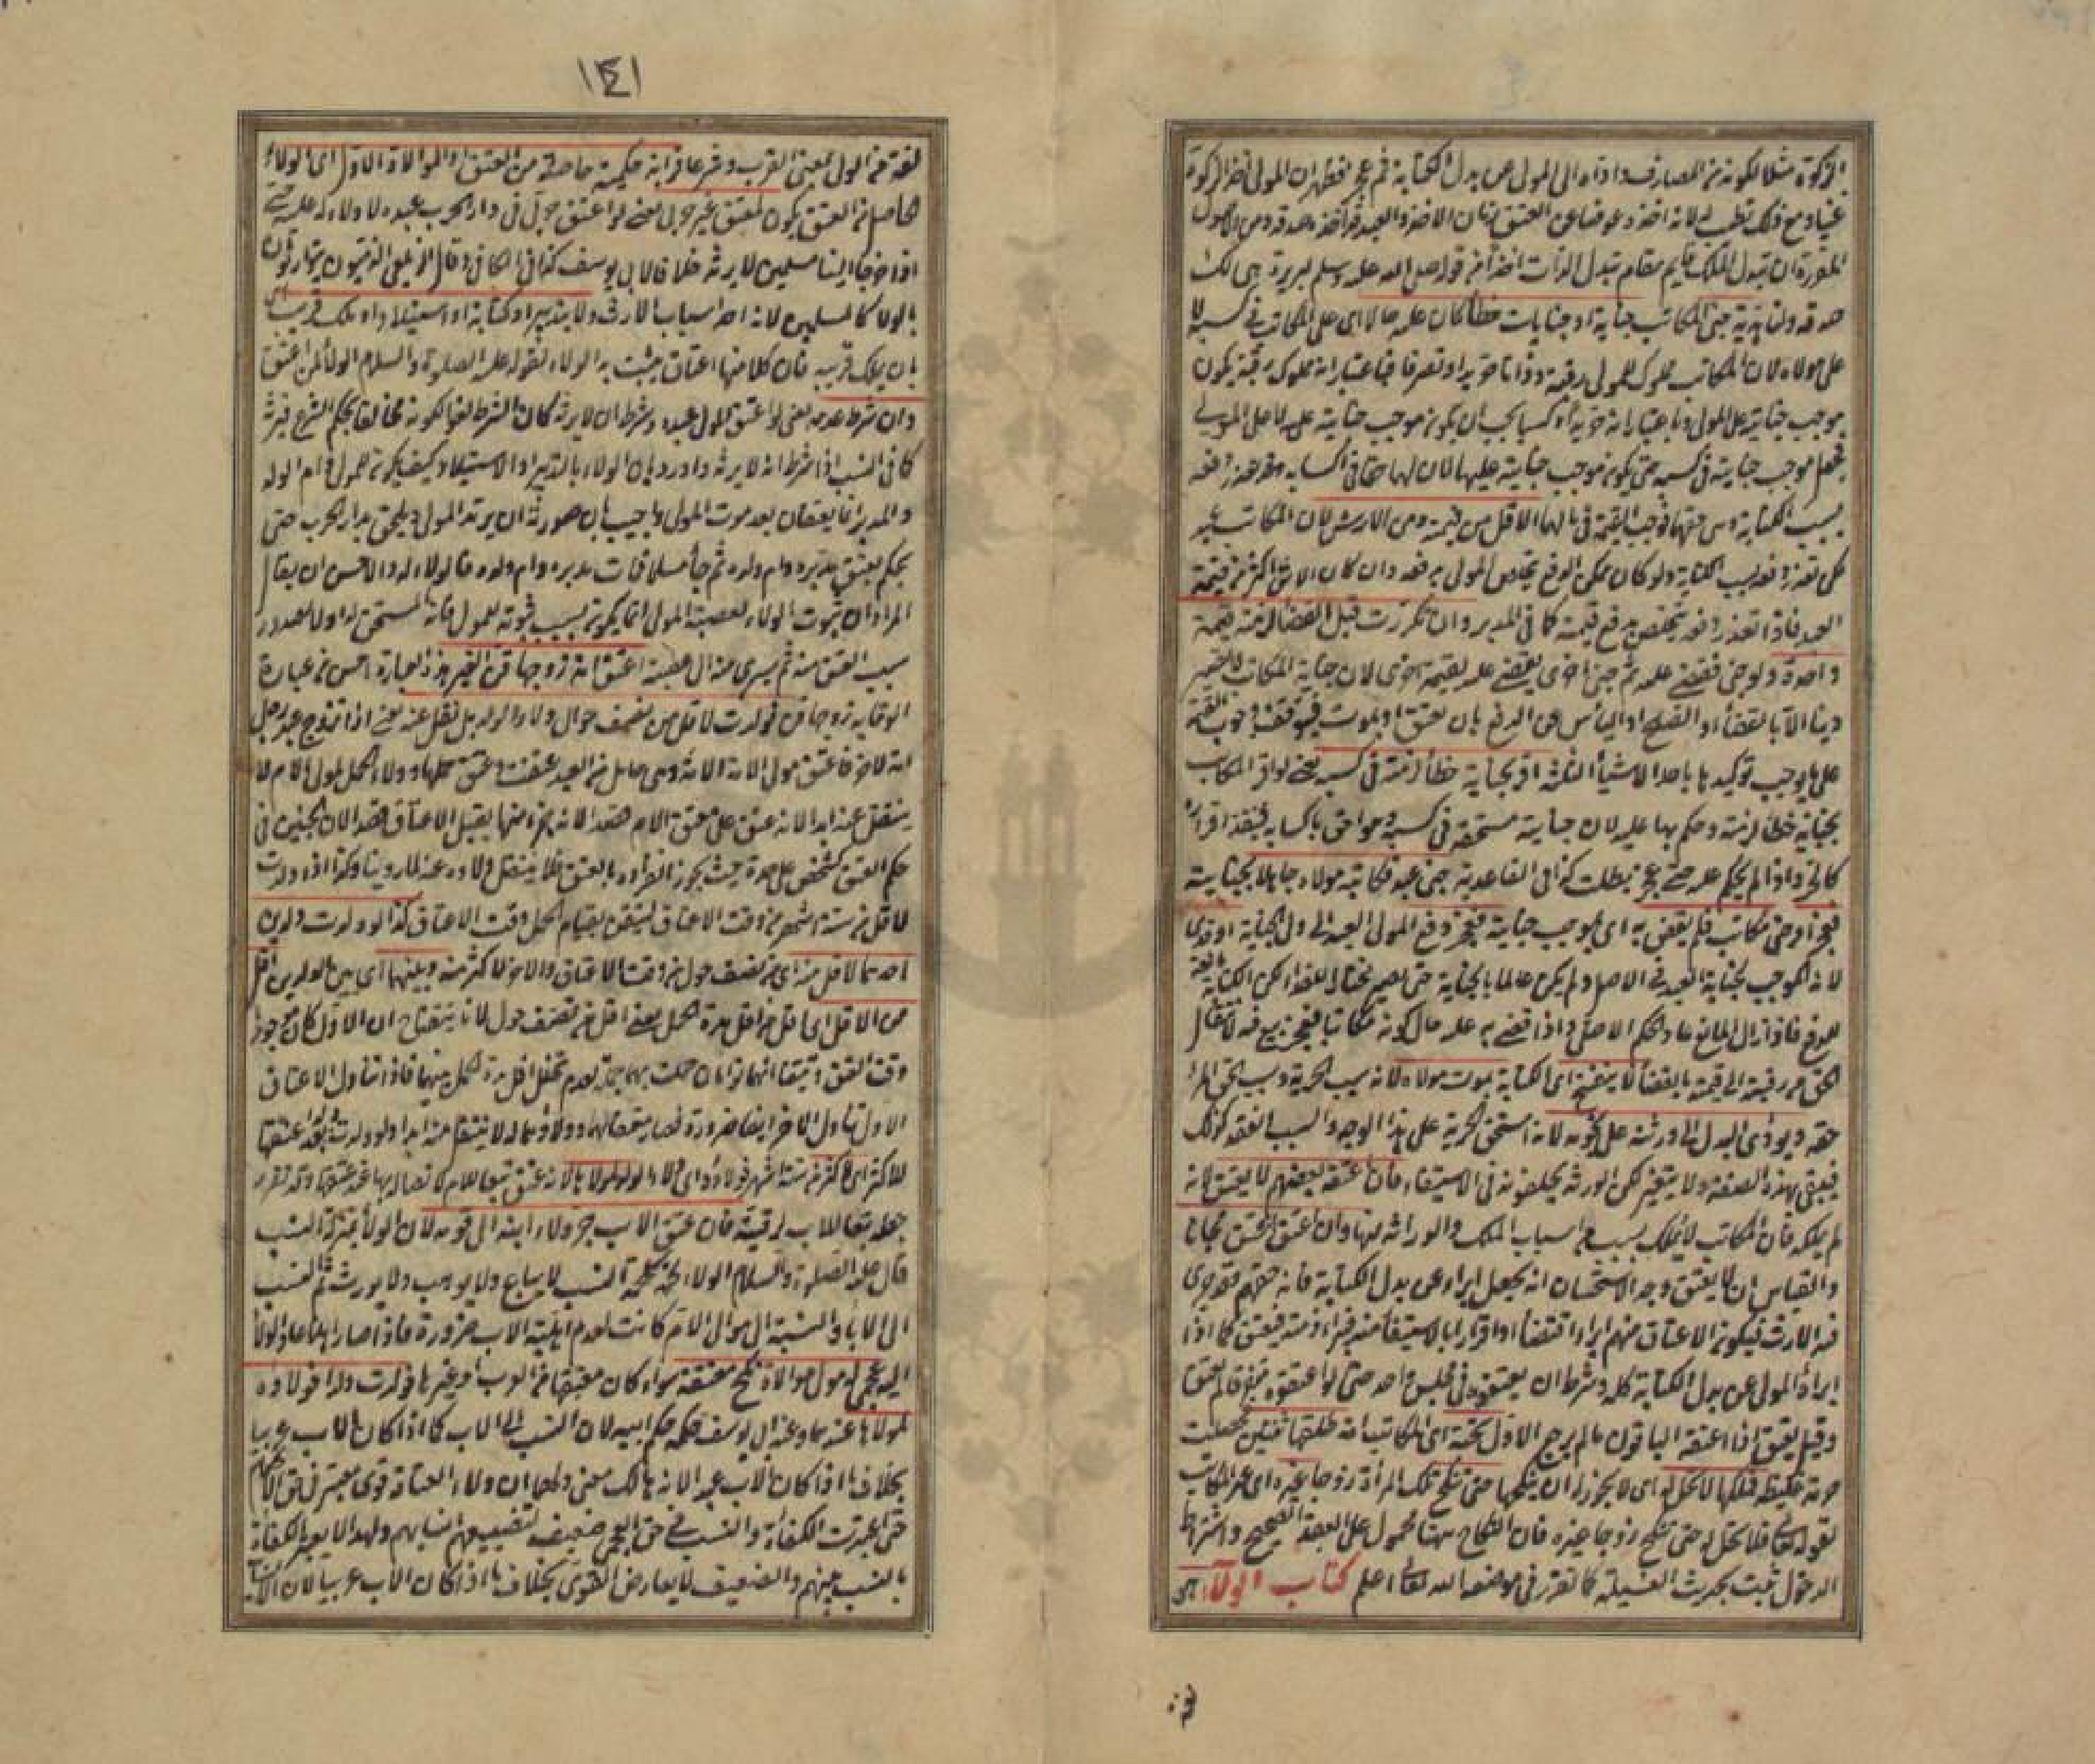 الزكوة مثلا لكونه من المصارف واداه الى المولى من بدل الكتابة ثم عجز فظهر ان المولى اخذ الزكوة
غنيا ومع ذلك تطيب له لانه اخذه عوضا عن العتق زمان الاخذ والعبد قد اخذه صدقة ومن الاصول
المقررة ان تبدل الملك قايم مقام تبدل الذات اخذا من قوله صلى الله عليه وسلم لبريرة هي لك
صدقة ولنا هدية جنى المكاتب جناية او جنايات خطأ كان عليه حالا اى على المكاتب في كسبه لا
على مولاه لان المكاتب مملوك للمولى رقبة وذاتا حر يدا وتصرفا فباعتبار انه مملوك رقبة يكون
موجب جنايته على المولى وباعتبار انه حر يدا وكسبا يجب ان يكون موجب جنايته عليه لا على المولى
فجعل موجب جنايته في كسبه حتى يكون موجب جنايته عليهما لان لهما حقا في اكسابه
بسبب الكتابة ومن حقهما فوجب القيمة في مالهما الاقل من قيمته ومن الارش لان المكاتب غير
ولو كان يمكن الدفع تخلص المولى بدفعه وان كان الارش اكثر من قيمة
العبد فاذا تعذر دفعه تخلص بدفع قيمته كما في المدبر وان تكررت قبل القضاء لزمته قيمة
واحدة ولو جنى فقضى عليه ثم جنى اخرى يقضى عليه بقيمة اخرى لان جناية المكاتب لا تصير
دينا الا بالقضاء او الصلح او اليأس عن الدفع بان يعتق او يموت فيتوقف وجوب القيمة
على ما يوجب توكيدها باحد الاشياء الثلثة اقر بجناية خطأ لزمته في كسبه يعنى لو اقر المكاتب
بجناية خطأ لزمته وحكم بها عليه لان جنايته مستحقة في كسبه وهو احق باكسابه فينفذ اقراره
كالحر واذا لم يحكم عليه حتى عجز بطلت كذا في القاعدية جنى عبد فكاتبه مولاه جاهلا بجنايته
فعجز او جنى مكاتب فلم يقض به اى بموجب جناية فعجز دفع المولى العبد الى ولى الجناية او فدى
لانه الموجب لجناية العبد في الاصل ولم يكن عالما بالجناية حتى يصير مختارا للفداء لكن الكتابة مانعة
للدفع فاذا زال المانع عاد الحكم الاصلى واذا قضى به عليه حال كونه مكاتبا فعجز بيع فيه لانتقال
الحق من رقبته الى قيمته بالقضاء لا ينفسخ اى الكتابة بموت مولاه لانه سبب الحرية وسبب حق المرء
حقه ويؤدى البدل الى ورثته على نجومه لانه استحق الحرية على هذا الوجه والسبب انعقد كذلك
فيبقى بهذه الصفة ولا يتغير لكن الورثة يخلفونه في الاستيفاء فان اعتقه بعضهم لا يعتق لانه
لم يملكه فان المكاتب لا يملك بسبب من اسباب الملك والوراثة منها وان اعتق الكل عتق مجانا
والقياس ان لا يعتق وجه الاستحسان انه يجعل ابراء عن بدل الكتابة فانه حقهم وقد جرى
فيه الارث فيكون الاعتاق منهم ابراء اقتضاء او اقرارا بالاستيفاء منه فيبرأ ذمته فيعتق كما اذا
ابرأه المولى عن بدل الكتابة كله وشرط ان يعتقوه في مجلس واحد حتى لو اعتقوه متفرقا لم يعتق
وقيل يعتق اذا اعتقه الباقون ما لم يرجع الاول تحته اى المكاتب امة طلقها ثنتين فحصلت
حرمة غليظة فملكها لا تحل له اى لا يجوز له ان ينكحها حتى تنكح تلك المرأة زوجا غيره اى غير المكاتب
لقوله تعالى فلا تحل له حتى تنكح زوجا غيره فان النكاح ههنا محمول على العقد الصحيح واشتراط
الدخول ثبت بحديث العسيلة كما تقرر في موضعه الله تعالى اعلم كتاب الولاء هو
١٤١
لغة من الولى بمعنى القرب وشرعا قرابة حكمية حاصلة من العتق او الموالاة الاول اى الولاء
الحاصل من العتق يكون لمعتق غير حربى يعنى لو اعتق حربى في دار الحرب عبده لا ولاء له عليه حتى
اذا خرجا الينا مسلمين لا يرثه خلافا لابى يوسف كذا في الكافى وقال الزيلعى الذميون يتوارثون
بالولاء كالمسلمين لانه احد اسباب الارث ولا بتدبير او كتابة او استيلاد او ملك قريب
بان يملك قريبه فان كلا منها اعتاق يثبت به الولاء لقوله عليه الصلوة والسلام الولاء لمن اعتق
وان شرط عدمه يعنى لو اعتق المولى عبده وشرط ان لا يرثه كان الشرط لغوا لكونه مخالفا لحكم الشرع فيرثه
كما في النسب اذا شرط انه لا يرثه واورد بان الولاء بالتدبير او الاستيلاد كيف يكون للمولى وام الولد
والمدبر انما يعتقان بعد موت المولى واجيب بان صورته ان يرتد المولى ويلحق بدار الحرب حتى
يحكم بعتق مدبره وام ولده ثم جاء مسلما فمات مدبره وام ولده فالولاء له والاحسن ان يقال
المراد ان ثبوت الولاء لعصبة المولى انما يكون بسبب ثبوته للمولى فانه المستحق له اولا لصدور
سبب العتق منه ثم يسرى منه الى عصبته اعتق امة زوجها قن الغير هذه العبارة احسن من عبارة
الوقاية زوجها قن فولدت لاقل من نصف حول ولاء الولد بل نقل عنه يعنى اذا تزوج عبد رجل
امة لاخر فاعتق مولى الامة الامة وهى حامل من العبد عتقت وعتق حملها وولاء الحمل لمولى الام لا
ينتقل عنه ابدا لانه عتق على معتق الام قصدا لانه جزء منها يقبل الاعتاق قصدا لان الجنين في
حكم العتق كشخص على حدة حيث يجوز افراده بالعتق فلا ينتقل ولاءه عنه لما روينا وكذا اذا ولدت
لاقل من ستة اشهر من وقت الاعتاق لتيقن بقيام الحمل وقت الاعتاق كذا لو ولدت ولدين
احدهما لاقل منه اى من نصف حول من وقت الاعتاق والاخر لاكثر منه وبينهما اى بين الولدين اقل
من الاقل اى اقل من اقل مدة الحمل يعنى اقل من نصف حول لانا تيقنا ح ان الاول كان موجودا
وقت العتق وتيقنا انهما توامان حملت بهما جملة لعدم تخلل اقل مدة الحمل بينهما فاذا تناول الاعتاق
الاول تناول الاخر ايضا ضرورة فصار معتقا لهما وولاؤهما له لا ينتقل منه ابدا ولو ولدت بعد عتقها
للاكثر اى لاكثر من ستة اشهر فولاؤه اى ولاء الولد لمولاها لانه عتق تبعا للام لاتصاله بها بعد عتقها وقد تعذر
جعله تبعا للاب لرقيته فان عتق الاب جر ولاء ابنه الى قومه لان الولاء بمنزلة النسب
قال عليه الصلوة والسلام الولاء لحمة كلحمة النسب لا يباع ولا يوهب ولا يورث ثم النسب
الى الاباء والنسبة الى موالى الام كانت لعدم اهلية الاب ضرورة فاذا صار اهلا عاد الولاء
اليه عجمى له مولى موالاة نكح معتقة سواء كان معتقها من العرب او غيرها فولدت ولدا فولاؤه
لمولاها عندهما وعند ابى يوسف حكمه حكم ابيه لان النسب الى الاب كما اذا كان الاب عربيا
بخلاف ما اذا كان الاب عبدا لانه هالك معنى ولهما ان ولاء العتاقة قوى معتبر في حق الاحكام
حتى اعتبرت الكفاءة والنسب في حق العجم ضعيف لتضييعهم انسابهم ولهذا لا يعتبر الكفاءة
بالنسب بينهم والضعيف لا يعارض القوى بخلاف ما اذا كان الاب عربيا لان الانساب